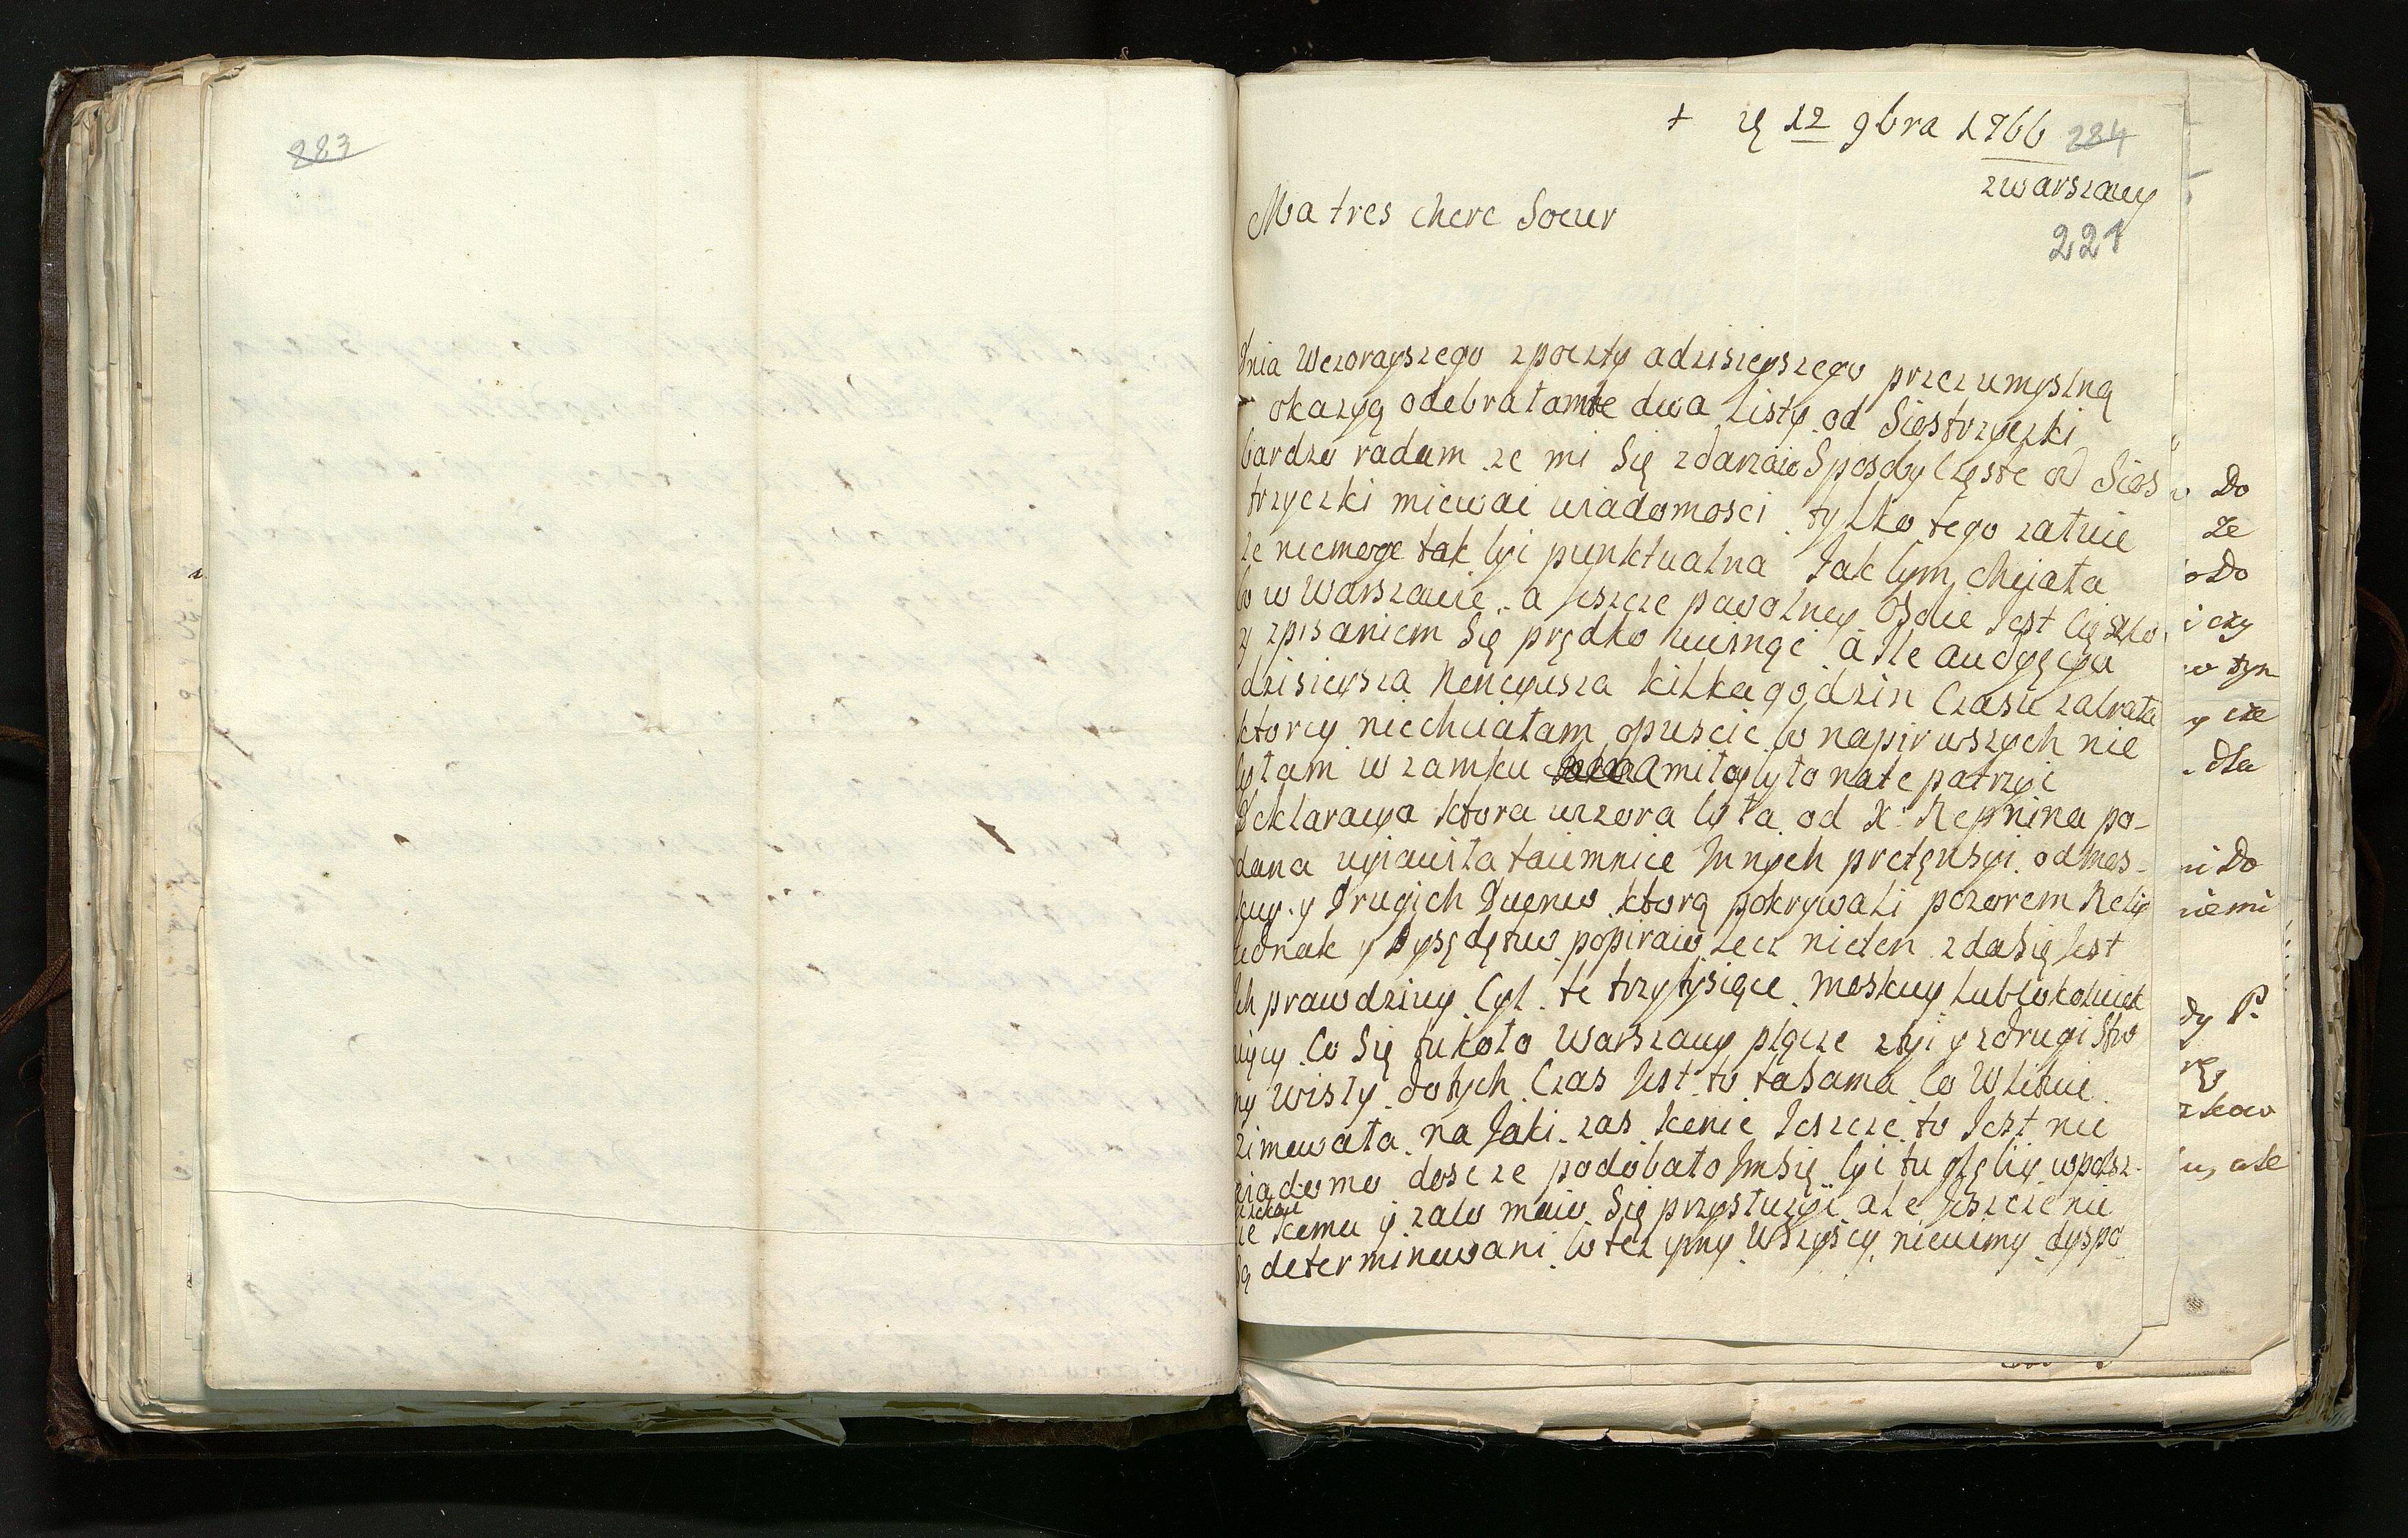 283
+ 12 9bra 1766 284
zwarszawy
Ma tres chere Soeur
221
dnia Wczorayszego zpoczty adzisieyszego przez umyslną
okazyą odebrałamte dwa Listy od Siostrzyczki
bardzo radam ze mi Się zdarzaio Sposoby Częste od Sios
trzyczki miewac wiadomosci tylko tego załuie
ze niemoge tak byc punktualna Jak bym chciała
bo w Warszawie a Jeszcze pawolney Osobie Jest Cięszko
zpisaniem Się prędko uwinąć a Ile audyęcya
dzisieysza Nuncyusza kilka godzin Czasu zabrała
ktorey niechciałam opuscic bo napirwszych nie
byłam wzamku miło było nate patrzyc
Deklaracya ktora wczora była od X: Repnina po-
dana wyiawiła taiemnice Jnnych pretęnsyi odmos-
kwy y Drugich Dworuw ktorą pokrywali pozorem Relig
Jednak y Dysędętuw popiraio Lecz nieten zdasię Jest
Ich prawdziwy Cyl te trzytysiące moskwy Lub
więcy Co Się tukoło Warszawy plącze ztyi y zdrugi Stro
ny wisły dotych Czas Jest to tasama Co W Litwie
zimowała na Jaki zas koniec Jeszcze to Jest nie
wiadomo dosc ze podobało Jmsię byc tu głębiy wpolsz-
ze komu y zalo maio Się przysłuzyć ale Jeszcze nie
są determinowani bo tez ymy Wszyscy niewimy dyspo
Do
ze
Do
czy
w tym
cze
dla
ni Do
niemi
dy P.
ale